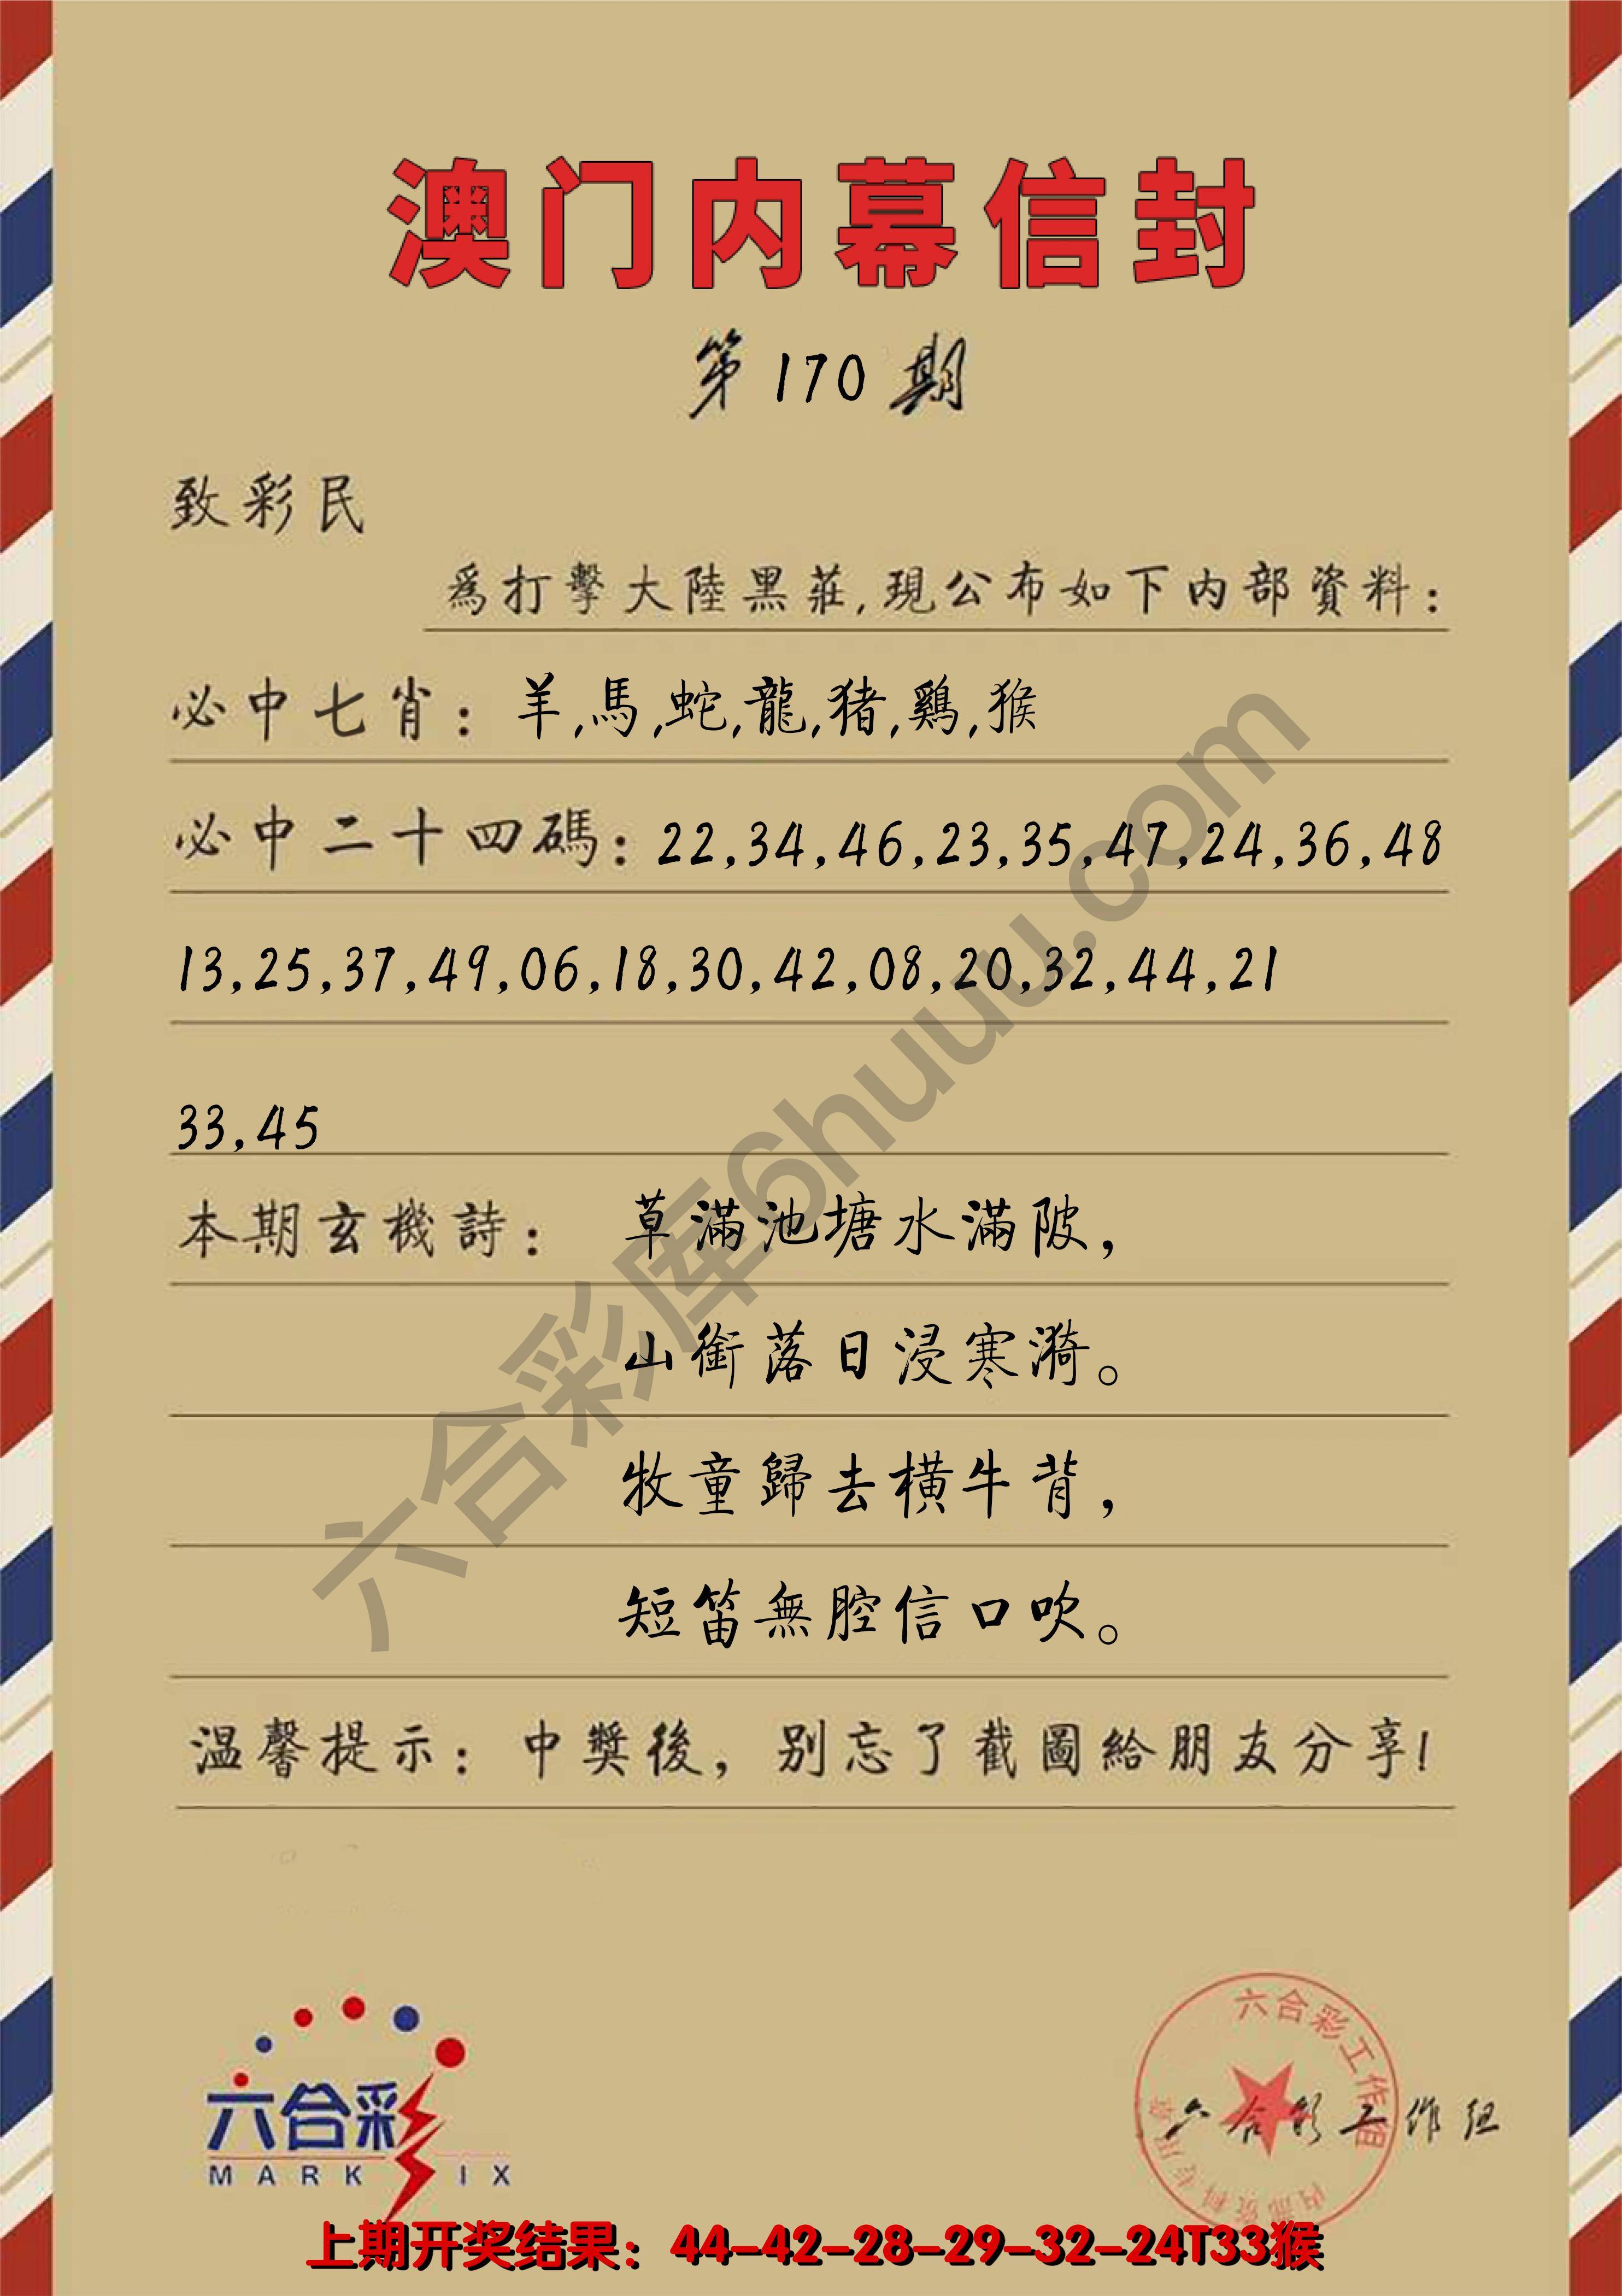 澳门内幕信封
第170期
致彩民
爲打擊大陸黑莊,現公布如下内部資料:
必中七肖: 羊,馬,蛇,龍,猪,鷄,猴
必中二十四碼: 22,34,46,23,35,47,24,36,48
13,25,37,49,06,18,30,42,08,20,32,44,21
33,45
本期玄機詩: 草滿池塘水滿陂,
山銜落日浸寒漪。
牧童歸去橫牛背,
短笛無腔信口吹。
温馨提示: 中獎後, 别忘了截圖給朋友分享!
六合彩库6huuu.com
六合彩
MARK IX
六合彩工作组
六合彩工作组
上期开奖结果: 44-42-28-29-32-24T33猴